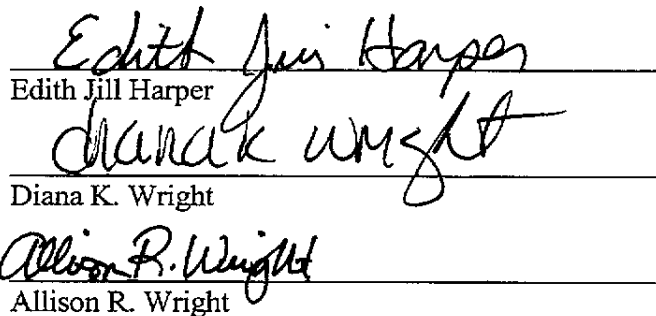 Edith Jill Harper
Edith Jill Harper
Diana K Wright
Diana K. Wright
Allison R. Wright
Allison R. Wright